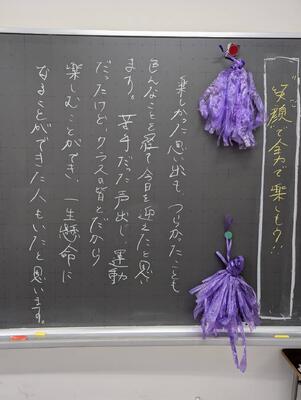 笑顔で全力で楽しもう!!
楽しかった思い出も つらかったことも
色んなことを経て今日を迎えたと思い
ます。 苦手だった声出し 運動
だったけど、クラスの皆とだから
楽しむことができ、一生懸命に
なることができた人もいたと思います。